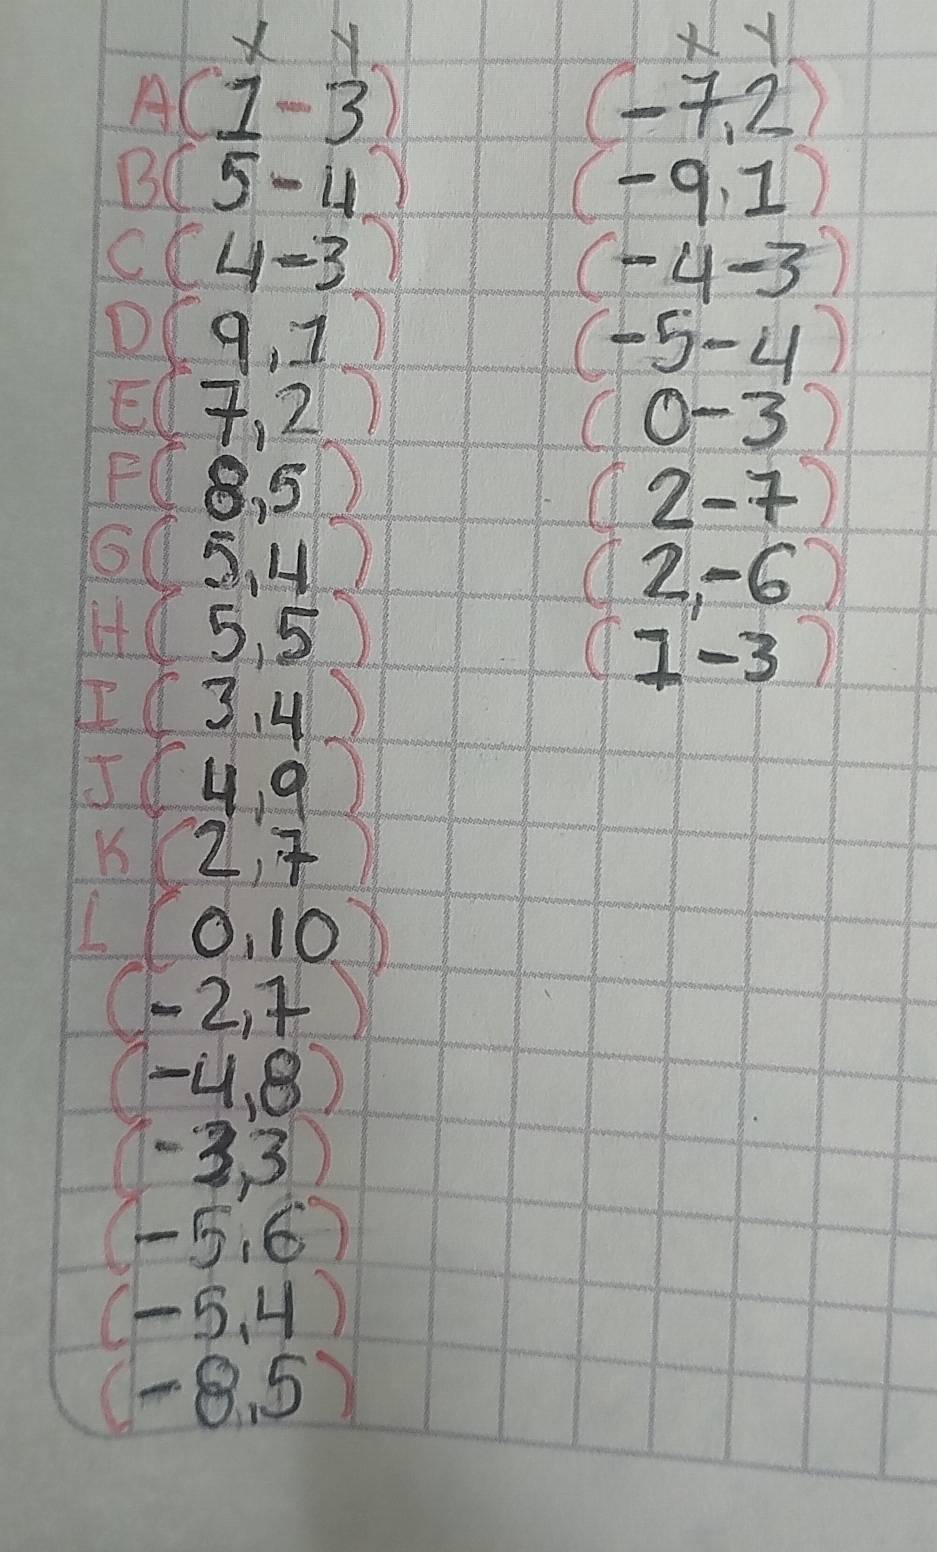 X Y
A(1-3)
B(5-4)
C(4-3)
D(9,1)
E(7,2)
F(8,5)
G(5,4)
H(5,5)
I(3,4)
J(4,9)
K(2,7)
L(0,10)
(-2,7)
(-4,8)
(-3,3)
(-5,6)
(-5,4)
(-8,5)
X Y
(-7,2)
(-9,1)
(-4-3)
(-5-4)
(0-3)
(2-7)
(2,-6)
(1-3)